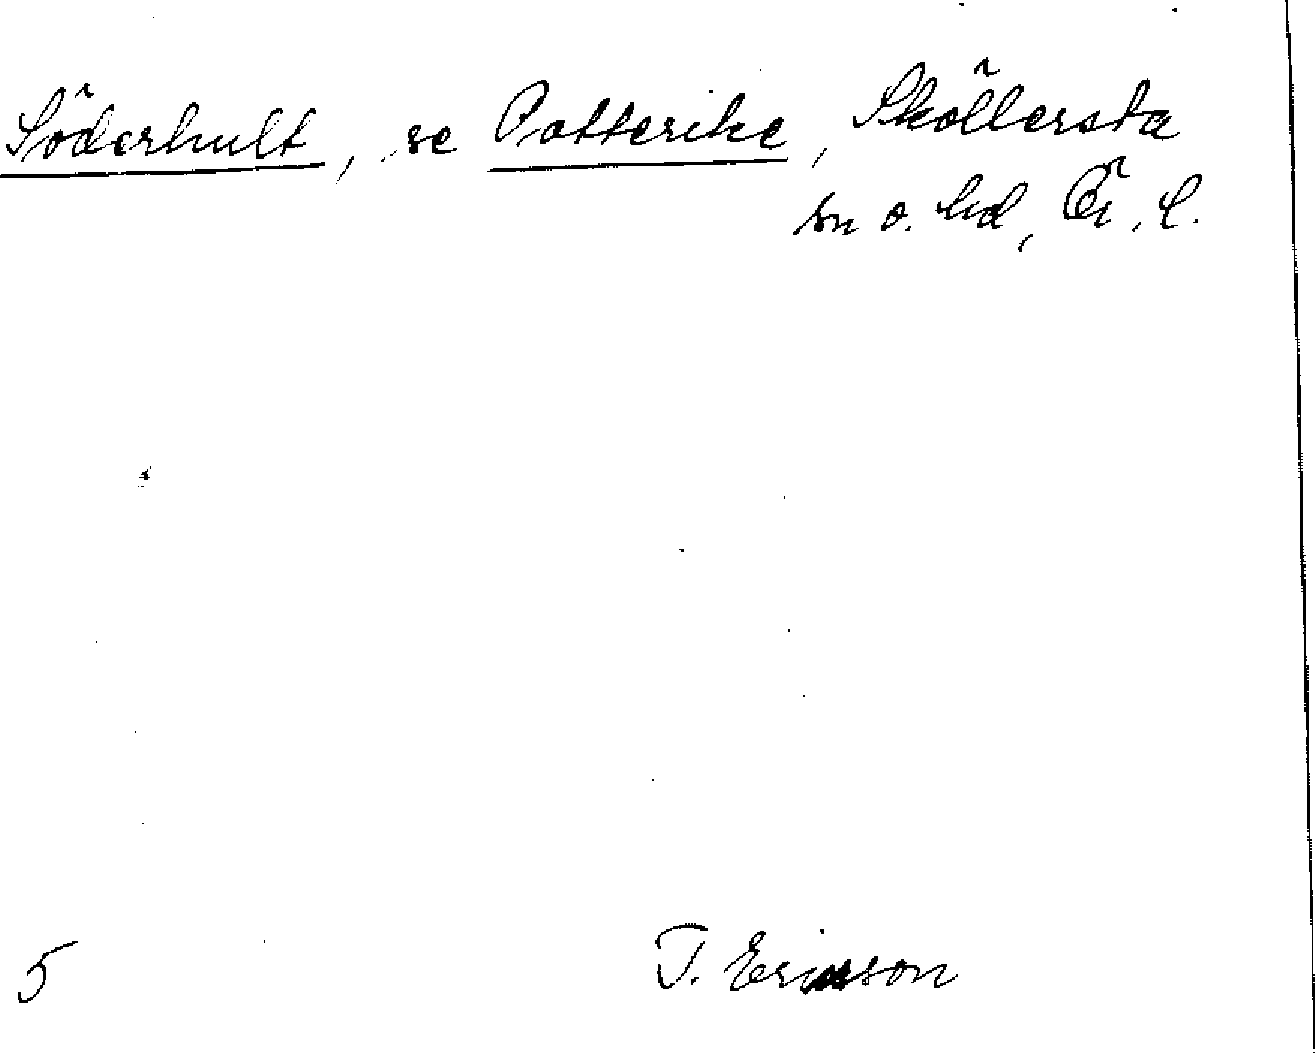 Söderhult, se Potterike, Sköllersta
sn o. hd, Ör. l.
5 T. Ericsson